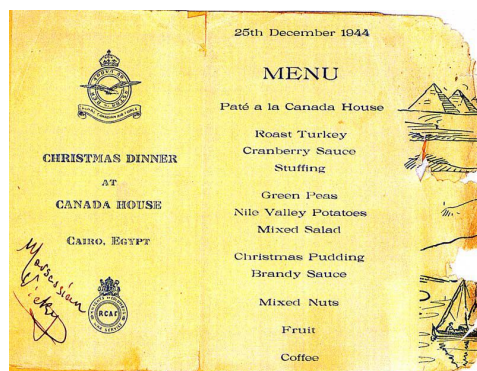 CHRISTMAS DINNER
AT
CANADA HOUSE
CAIRO, EGYPT
RCAF
25th December 1944
MENU
Paté a la Canada House
Roast Turkey
Cranberry Sauce
Stuffing
Green Peas
Nile Valley Potatoes
Mixed Salad
Christmas Pudding
Brandy Sauce
Mixed Nuts
Fruit
Coffee